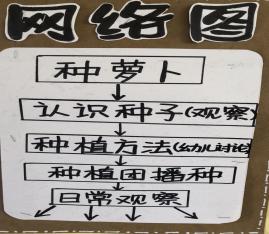 网络图
种萝卜
认识种子(观察)
种植方法(幼儿讨论)
种植团播种
日常观察